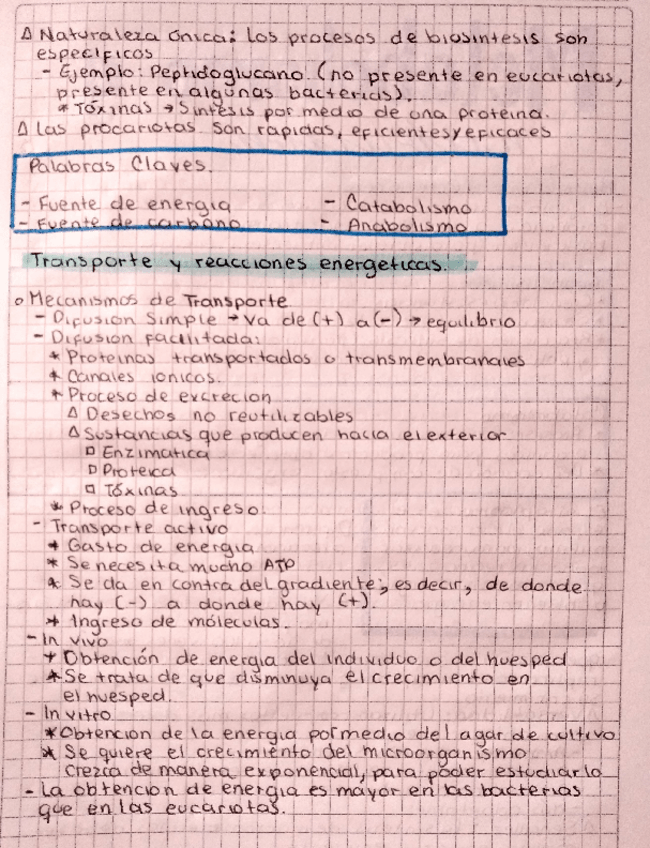 Δ Naturaleza única: los procesos de biosíntesis son
específicos
- Ejemplo: Peptidoglucano (no presente en eucariotas,
presente en algunas bacterias).
* Tóxinas → Síntesis por medio de una proteína.
Δ Las procariotas son rapidas, eficientes y eficaces
Palabras Claves.
- Fuente de energia - Catabolismo
- Fuente de carbono - Anabolismo
Transporte y reacciones energeticas.
o Mecanismos de Transporte
- Difusion Simple → va de (+) a (-) → equilibrio
- Difusion facilitada:
* Proteinas transportados o transmembranales
* Canales ionicos.
* Proceso de excrecion
Δ Desechos no reutilizables
Δ Sustancias que producen hacia el exterior
□ Enzimatica
□ Proteica
□ Tóxinas
* Proceso de ingreso.
- Transporte activo
* Gasto de energia
* Se necesita mucho ATP
* Se da en contra del gradiente; es decir, de donde
hay (-) a donde hay (+).
* Ingreso de móleculas.
- In vivo
* Obtención de energia del individuo o del huesped
* Se trata de que disminuya el crecimiento en
el huesped.
- In vitro
* Obtencion de la energia por medio del agar de cultivo
* Se quiere el crecimiento del microorganismo
crezca de manera exponencial, para poder estudiarlo
- La obtencion de energia es mayor en las bacterias
que en las eucariotas.